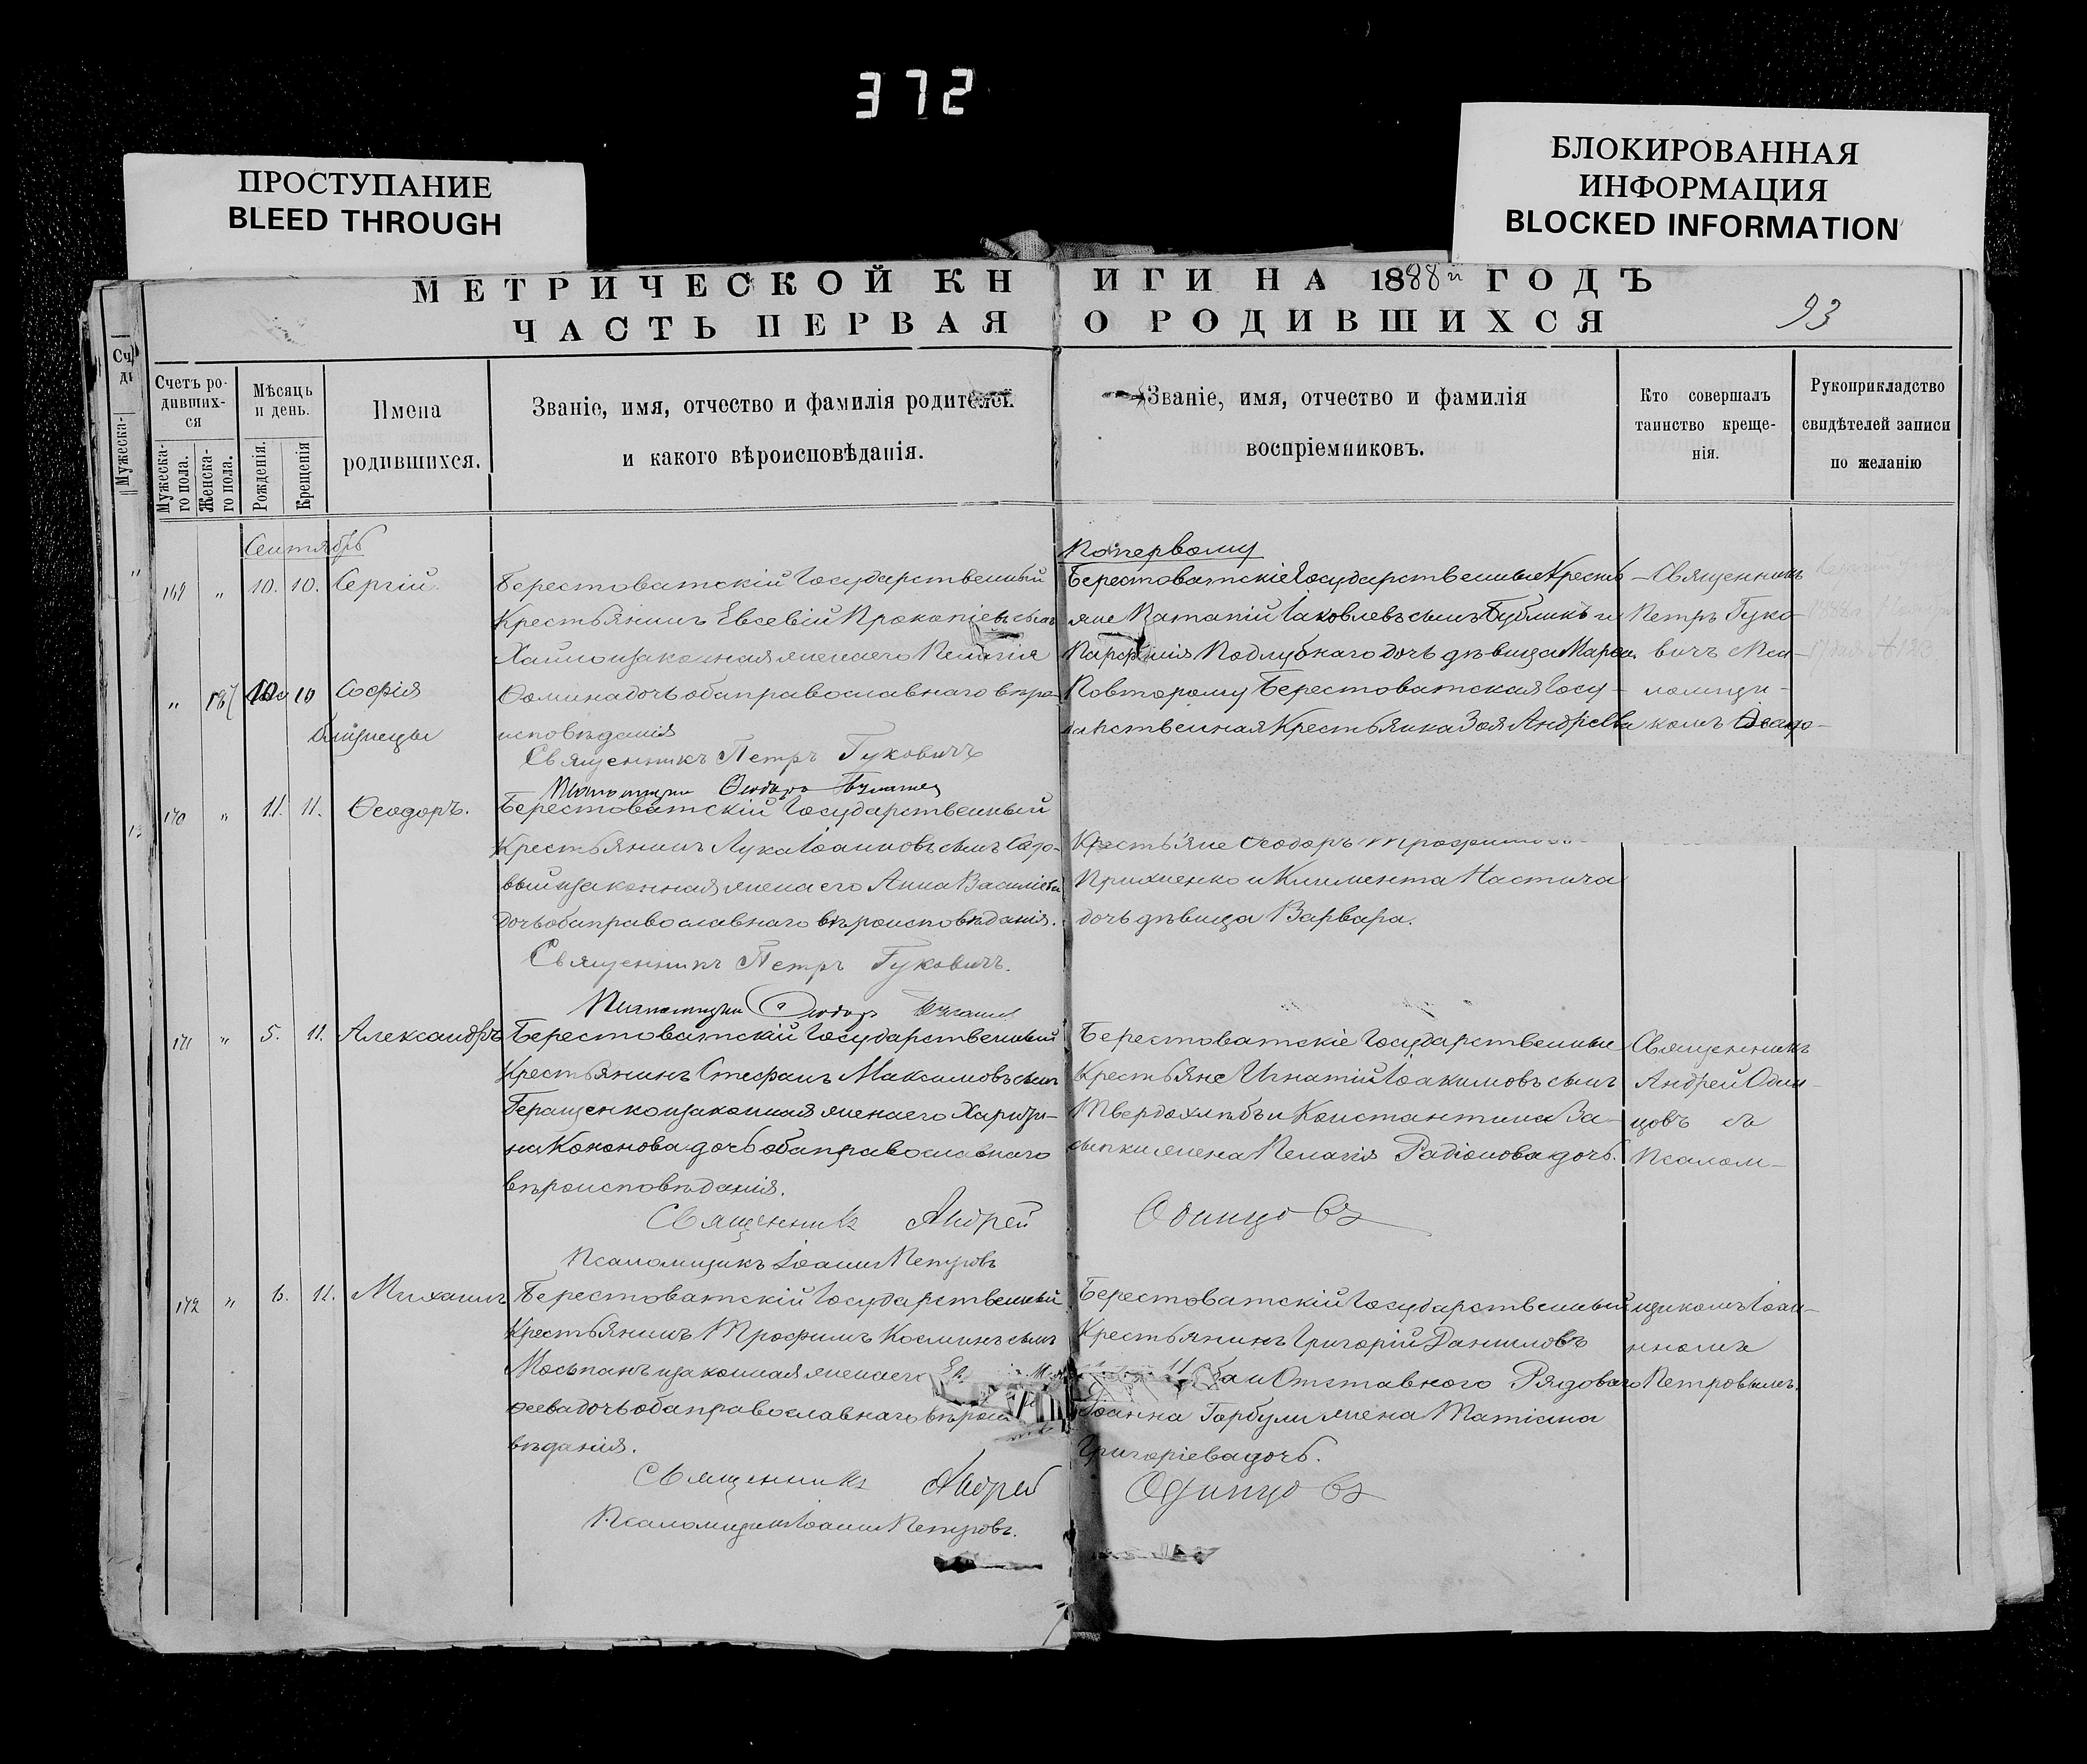 372
ПРОСТУПАНИЕ
BLEED THROUGH
БЛОКИРОВАННАЯ
ИНФОРМАЦИЯ
BLOCKED INFORMATION
МЕТРИЧЕСКОЙ КНИГИ НА 1888й ГОДЪ
ЧАСТЬ ПЕРВАЯ О РОДИВШИХСЯ
93
Счетъ ро-
дивших-
ся
Мужеска-
го пола.
Женска-
го пола.
Мѣсяцъ
и день.
Рожденія.
Крещенія
Имена
родившихся.
Званіе, имя, отчество и фамилія родителей.
и какого вѣроисповѣданія.
Званіе, имя, отчество и фамилія
воспріемниковъ.
Кто совершалъ
таинство креще-
нія.
Рукоприкладство
свидѣтелей записи
по желанію
Сентябрь
169 " 10. 10. Сергій
Берестоватскій Государственный
Крестьянинъ Евсевій Прокопіевъ сынъ
и законная жена его Пелагія
" 10 Софія
близнецы
Фомина дочь оба православнаго вѣро-
исповѣданія
Священникъ Петръ Гуковичъ
По первому
Берестоватскіе Государственные Кресть-
яне Іаковлевъ сынъ Бубликъ и
Подлубнаго дочь дѣвица
По второму Берестоватская Госу-
дарственная Крестьянка Зоя Андреева
Священникъ
Петръ Гуко-
вичъ Пса-
ломщи-
комъ
170 " 11. 11. Ѳеодоръ.
Берестоватскій Государственный
Крестьянинъ Лука Іоанновъ сынъ Садо-
вый и законная жена его Анна Василіева
дочь оба православнаго вѣроисповѣданія.
Священникъ Петръ Гуковичъ.
Крестьяне Ѳеодоръ
Прихненко и Климента Настича
дочь дѣвица Варвара.
171 " 5. 11. Александръ
Берестоватскій Государственный
Крестьянинъ Стефанъ Максимовъ сынъ
Геращенко и законная жена его Харити-
на Кононова дочь оба православнаго
вѣроисповѣданія.
Священникъ Андрей Одинцовъ
Псаломщикъ Іоаннъ Петровъ
Берестоватскіе Государственные
Крестьяне Игнатій Іоакимовъ сынъ
Твердохлѣбъ и Константина За-
сыпки жена Пелагія Радіонова дочь.
Священникъ
Андрей Один-
цовъ съ
Псалом-
172 " 6. 11. Михаилъ
Берестоватскій Государственный
Крестьянинъ Трофимъ Косминъ сынъ
Мосьпанъ и законная жена его
дочь оба православнаго вѣроис
вѣданія.
Священникъ Андрей Одинцовъ
Псаломщикъ Іоаннъ Петровъ.
Берестоватскій Государственный
Крестьянинъ Григорій Даниловъ
и Отставного Рядоваго
Іоанна Горбули жена Татіана
Григоріева дочь.
щикомъ Іоан-
номъ
Петровымъ.